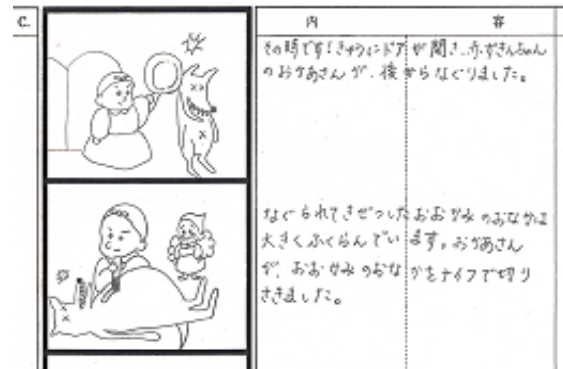 C.
内 容
その時です！きゅうにドアが開き、赤ずきんちゃん
のおかあさんが、後からなぐりました。
なぐられてきぜつしたおおかみのおなかは
大きくふくらんでいます。おかあさん
が、おおかみのおなかをナイフで切り
さきました。